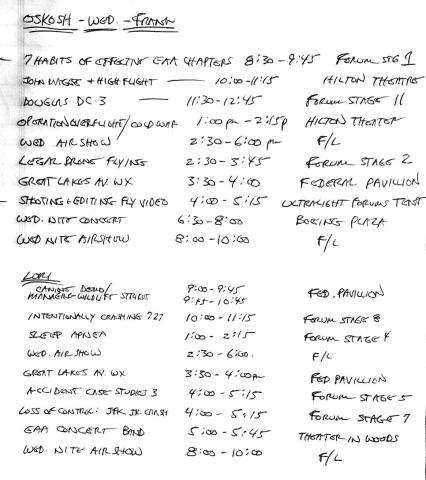 OSKOSH - WED. - FRANK
7 HABITS OF EFFECTIVE EAA CHAPTERS 8:30 - 9:45 FORUM STG 1
JOHN MAGEE + HIGH FLIGHT — 10:00 - 11:15 HILTON THEATRE
DOUGLAS DC-3 — 11:30 - 12:45 FORUM STAGE 11
OPERATION OVERFLIGHT / COLD WAR 1:00 pm - 2:15p HILTON THEATER
WED AIRSHOW 2:30 - 6:00 pm F/L
LEGAL DRONE FLYING 2:30 - 3:45 FORUM STAGE 2
GREAT LAKES AV. WX 3:30 - 4:00 FEDERAL PAVILION
SHOOTING + EDITING FLY VIDEO 4:00 - 5:15 ULTRALIGHT FORUMS TENT
WED. NITE CONCERT 6:30 - 8:00 BOEING PLAZA
WED NITE AIRSHOW 8:00 - 10:00 F/L
LORI
CANINE DEMO/ 9:00 - 9:45
MANAGING WILDLIFE STRIKES 9:45 - 10:45 FED. PAVILION
INTENTIONALLY CRASHING 727 10:00 - 11:15 FORUM STAGE 8
SLEEP APNEA 1:00 - 2:15 FORUM STAGE 4
WED. AIRSHOW 2:30 - 6:00 F/L
GREAT LAKES AV. WX 3:30 - 4:00pm FED PAVILLION
ACCIDENT CASE STUDIES 3 4:00 - 5:15 FORUM STAGE 5
LOSS OF CONTROL: JFK JR CRASH 4:00 - 5:15 FORUM STAGE 7
EAA CONCERT BAND 5:00 - 5:45 THEATER IN WOODS
WED. NITE AIRSHOW 8:00 - 10:00 F/L